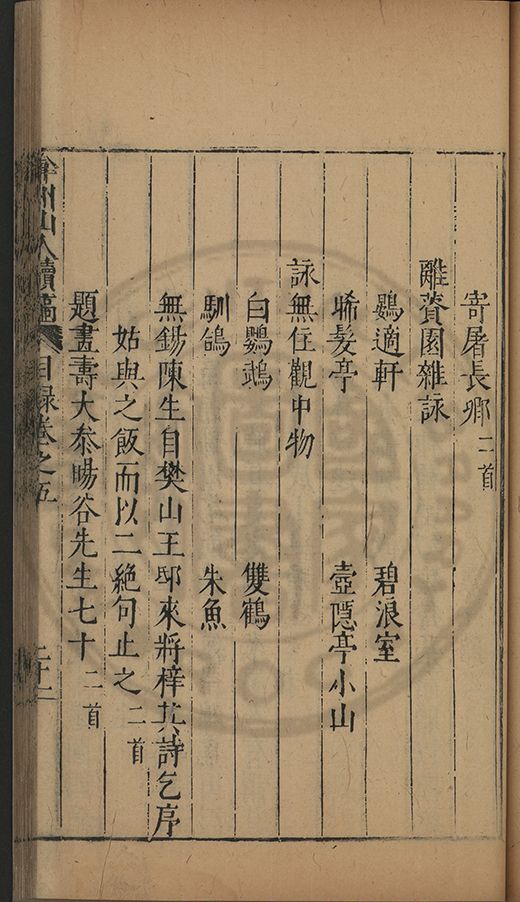 寄屠長卿二首
離薋園雜詠
鷃適軒　碧浪室
晞髮亭　壺隠亭小山
詠無住觀中物
白鸚鵡　雙鶴
馴鴿　朱魚
無錫陳生自樊山王邸來將梓其詩乞序
姑與之飯而以二絕句止之二首
題畫壽大叅暘谷先生七十二首
弇州山人續稿 目録卷之五 二十二